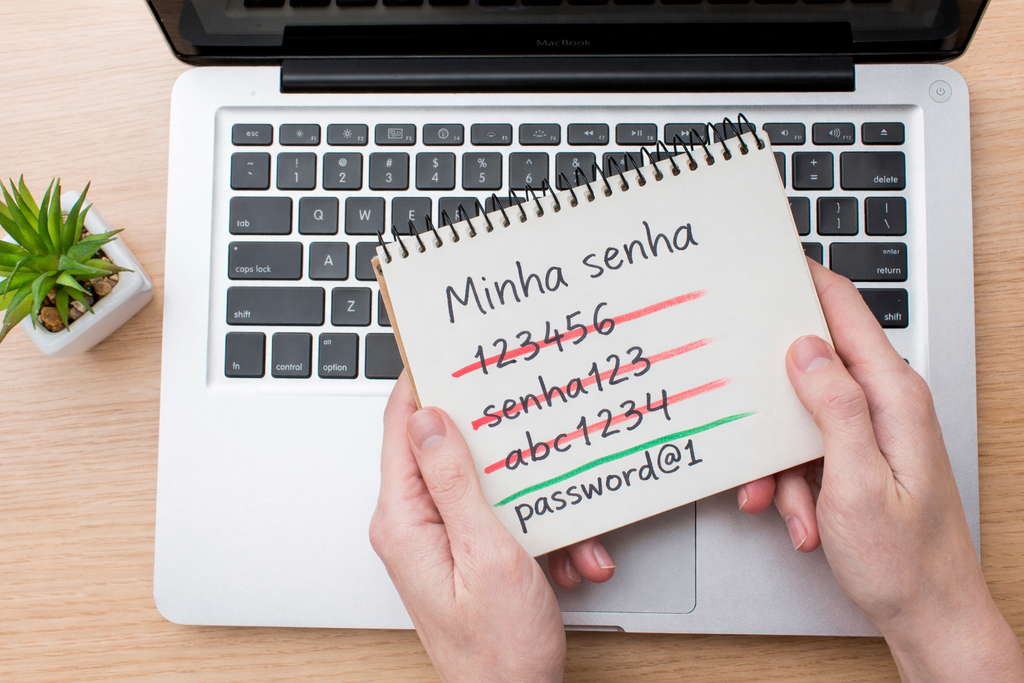 MacBook
esc F1 F2 F3 F4 F5 F6 F7 F8 F10 F11
~ ! 1 @ 2 # 3 $ 4 % 5 ^ 6 & + = delete
tab Q W E } ] { | \
caps lock A enter return
shift Z shift
fn control alt option
Minha senha
123456
senha123
abc1234
password@1